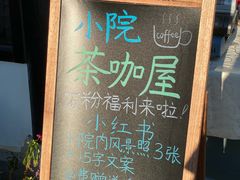 小院
coffee
茶咖屋
粉福利来啦
小红书
院内风景照3张
15字文案